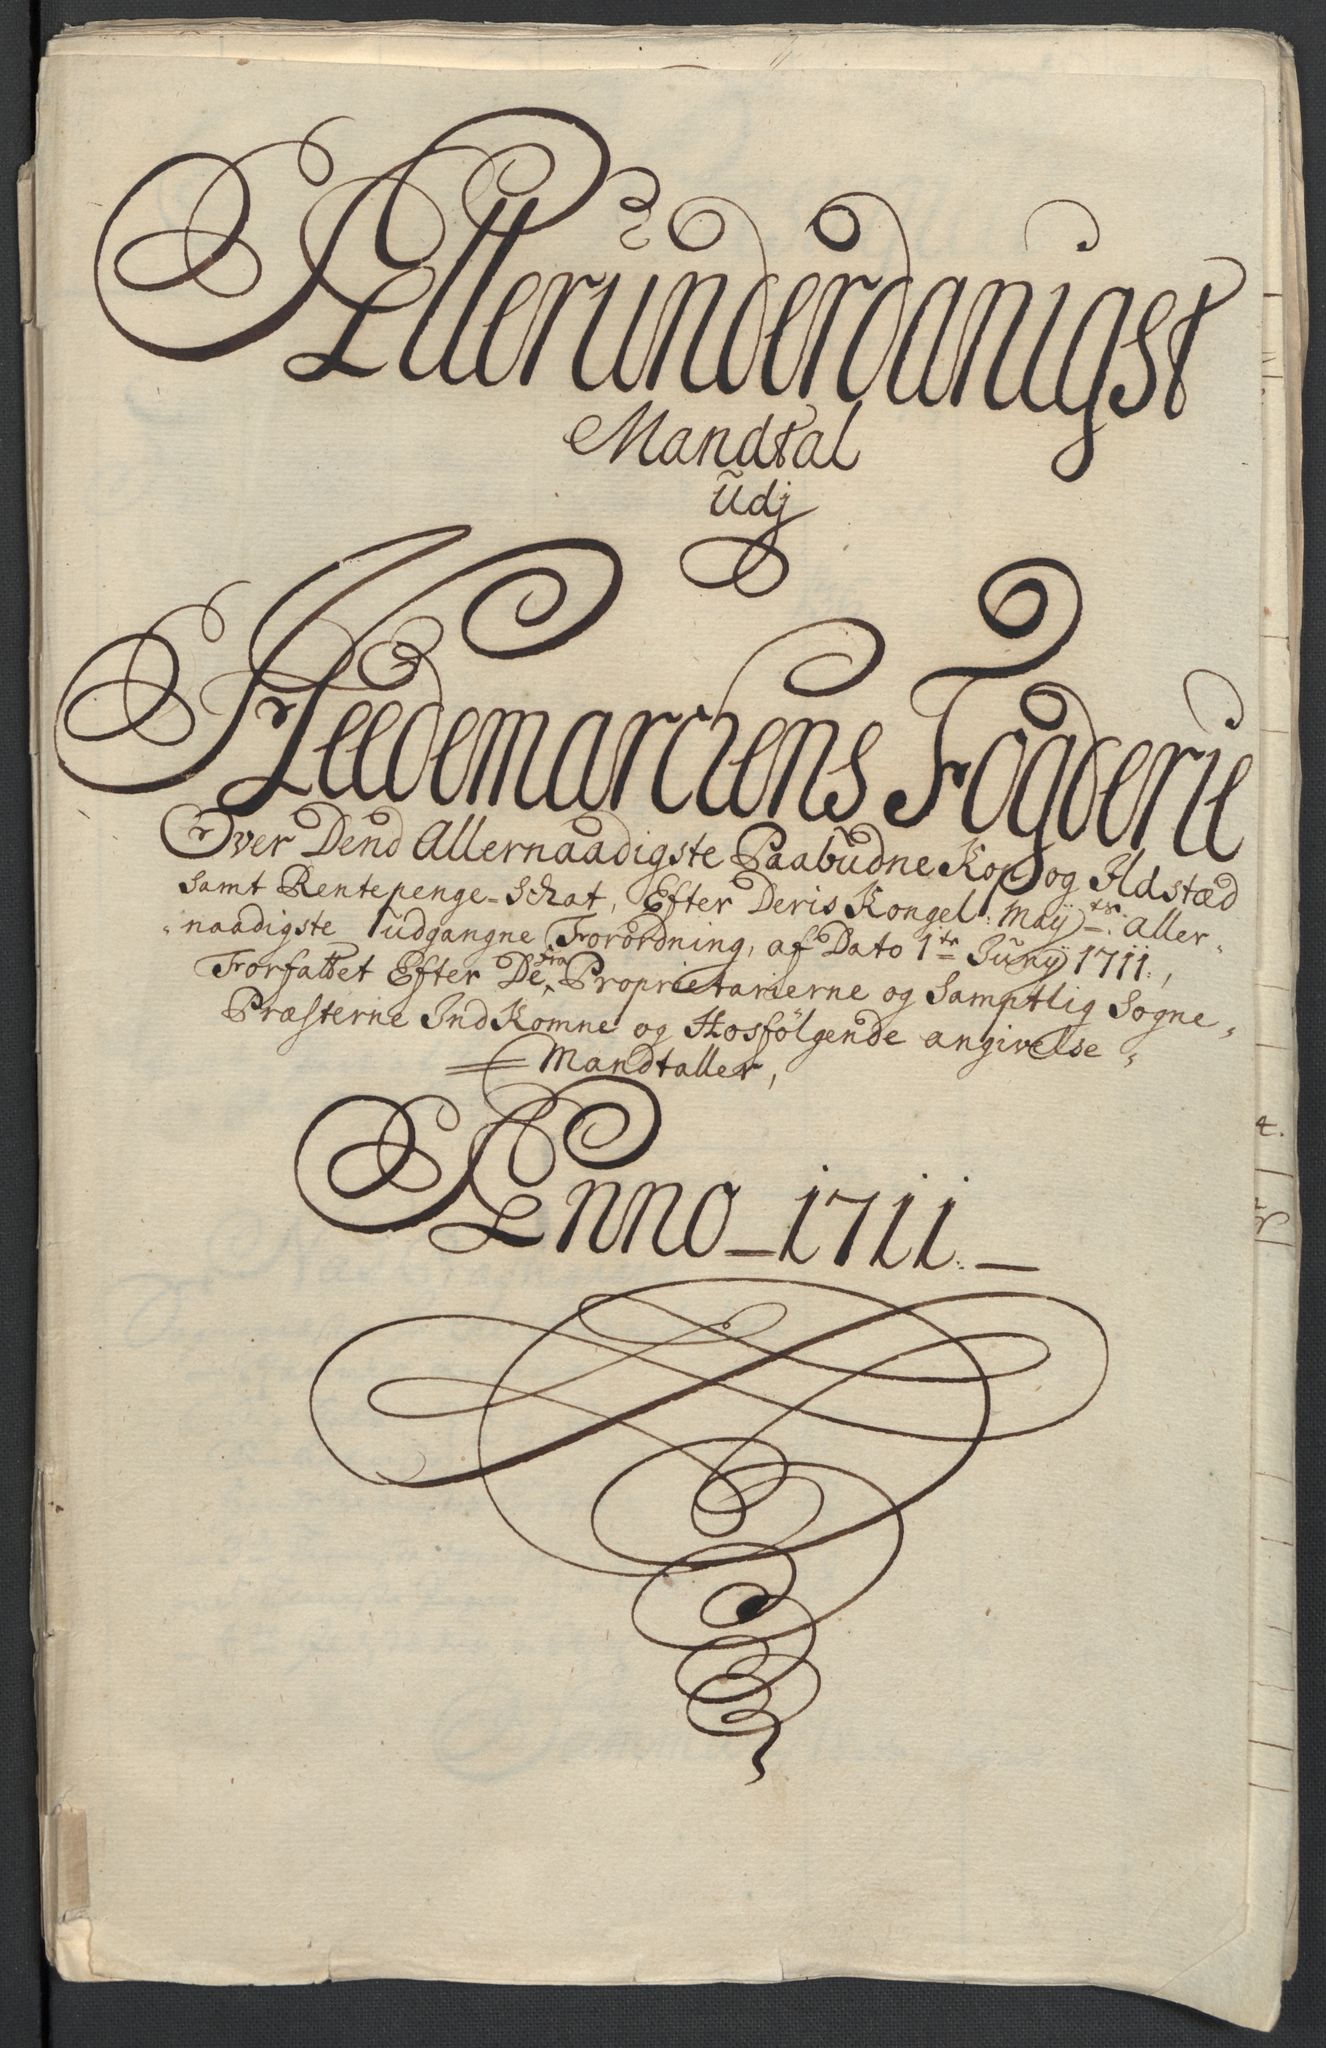 Allerunderdanigst
Mandtal
Udj
Heedemarchens Fogderie
Over Dend Allernaadigste Paabudne Kop og Ildstæd
Samt Rentepenge-Schat, Efter Deris Kongel: Maÿ:ts: Aller-
naadigste udgangne Forordning, af Dato 1te Junÿ 1711,
Forfattet Efter De fra Proprietarierne og Samptlig Sogne-
Præsterne IndKomne og Hosfölgende angivelse-
Mandtaller,
Anno 1711.